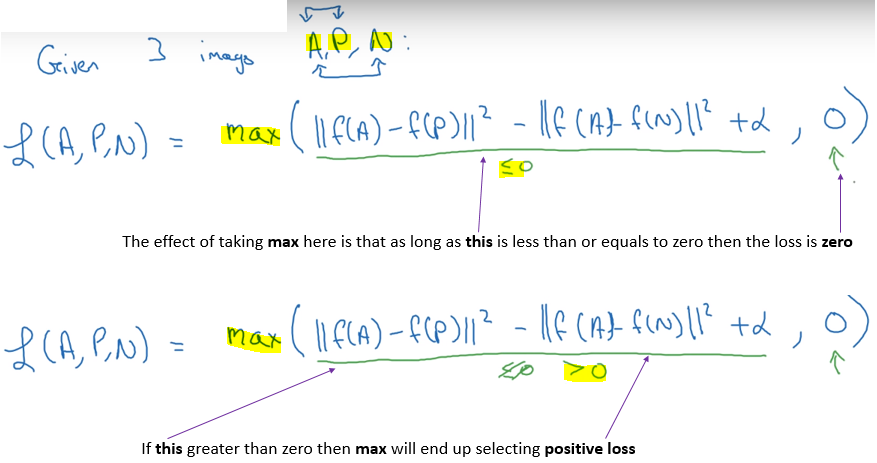 Given 3 image A, P, N :
L(A, P, N) = max ( ||f(A) - f(P)||² - ||f(A) - f(N)||² + α , 0 )
≤ 0
The effect of taking max here is that as long as this is less than or equals to zero then the loss is zero
L(A, P, N) = max ( ||f(A) - f(P)||² - ||f(A) - f(N)||² + α , 0 )
≤ 0 > 0
If this greater than zero then max will end up selecting positive loss